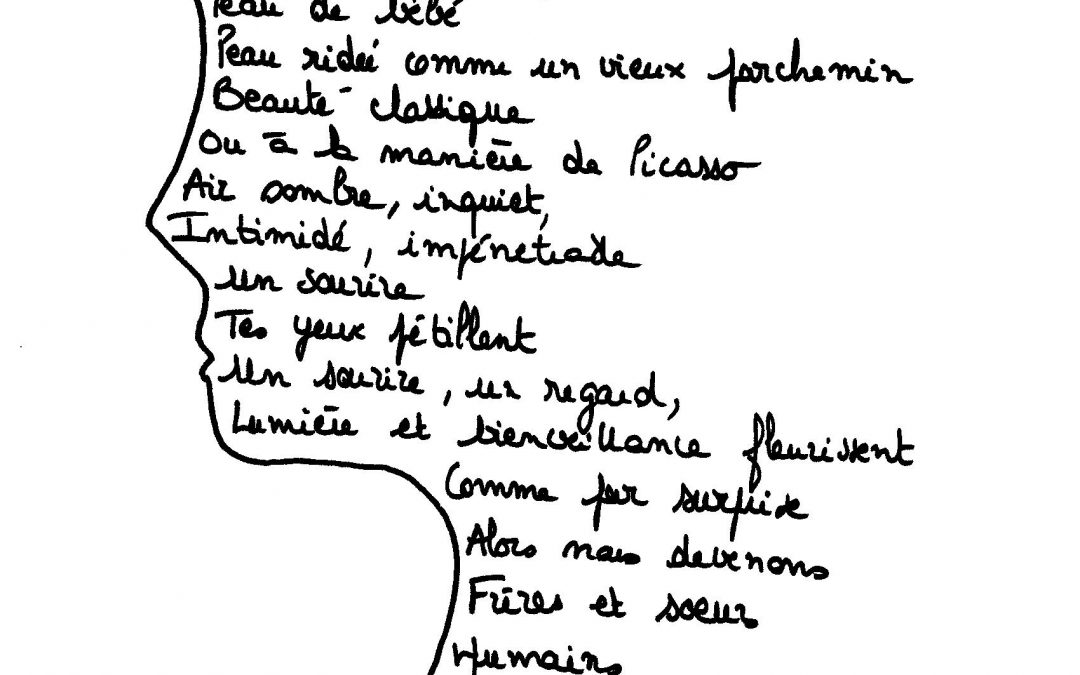 Peau de bébé
Peau ridée comme un vieux parchemin
Beauté classique
Ou à la manière de Picasso
Air sombre, inquiet,
Intimidé, impénétrable
Un sourire
Tes yeux pétillent
Un sourire, un regard,
Lumière et bienveillance fleurissent
Comme par surprise
Alors nous devenons
Frères et soeurs
Humains